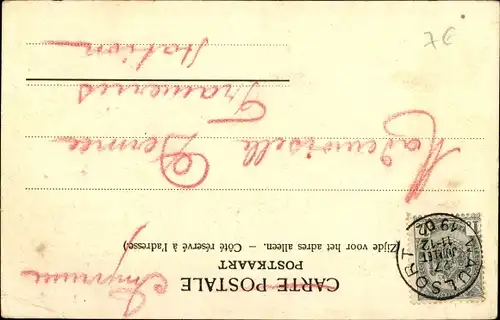 Imprimé
CARTE POSTALE
POSTKAART
(Zijde voor het adres alleen. — Côté réservé à l'adresse.)
WAULSORT
7
JUILLET
11-12
1902
Mademoiselle
Station
7€